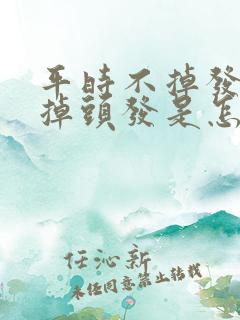 平時不掉發
掉頭發是怎
任沁新
未经同意禁止转载